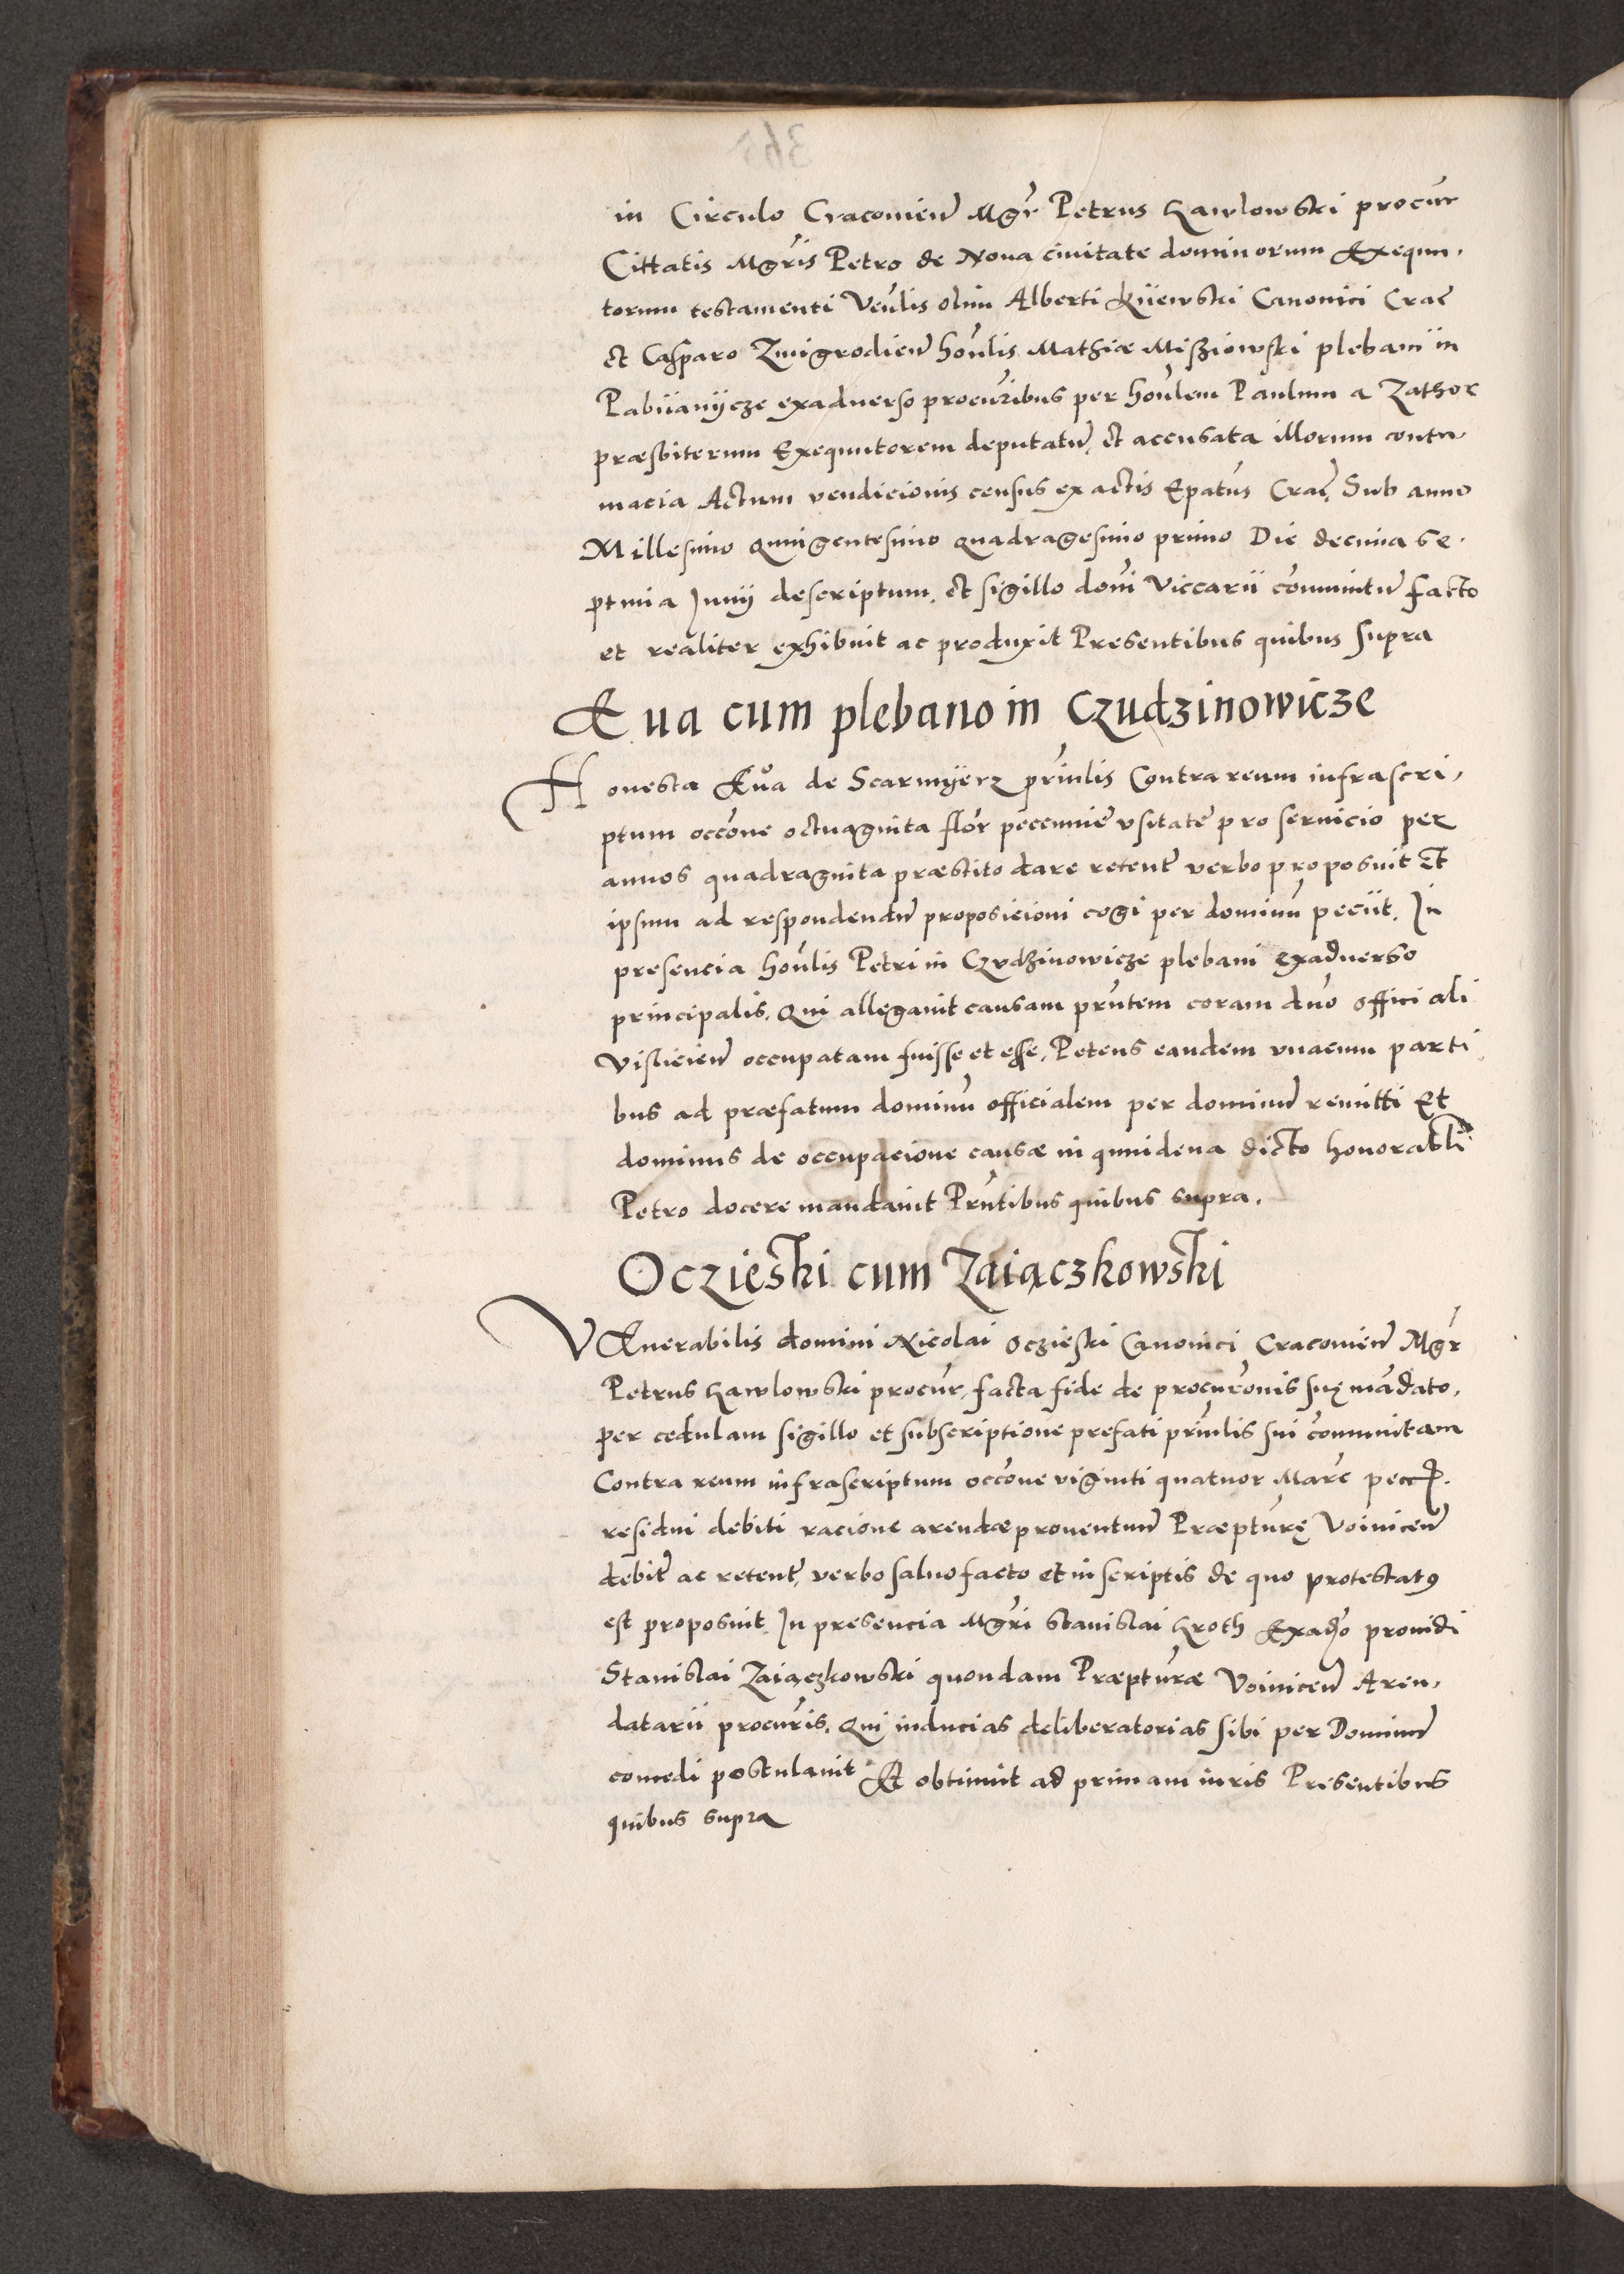 in Circulo Cracouien̄ Mgr̄ Petrus Kawlowski procur̄
Cittatis Mgr̄is Petro de Noua ciuitate dominorum Exequu-
torum testamenti Ven̄lis olim Alberti Kÿewski Canonici Crac̄
et Casparo Zmigrodien̄ hon̄lis Mathiæ Misziowski plebani in
Pabiianÿcze exaduerso procur̄ibus per hon̄lem Paulum a Zathor
præsbiterum Exequutorem deputatū, et accusata illorum contu-
macia Actum vendicionis census ex actis Ep̄atus Crac̄, Sub anno
Millesimo quingentesimo quadragesimo primo Die decima se-
ptmia Junij descriptum, et sigillo dom̄i Viccarii com̄unitū facto
et realiter exhibuit ac produxit Presentibus quibus supra
Eua cum plebano in Czudzinowicze
Honesta Eůa de Scarmÿerz prīnlis Contra reum infrascri-
ptum occ̄one octuaginta flor̄ peccuniē vsitatē pro seruicio per
annos quadraginta præstito dare retent̄ verbo proposuit Et
ipsum ad respondendū proposicioni cogi per dominū peciit. In
presencia hon̄lis Petri in Czudzinowicze plebani exaduerso
principalis, Qui allegauit causam prn̄tem coram dn̄o officiali
Visliciен̄ occupatam fuisse et esse, Petens eandem vnacum parti
bus ad præfatum dominū officialem per dominū remitti Et
dominus de occupacione causæ in quindena dicto honorabli
Petro docere mandauit Prn̄tibus quibus supra.
Oczieski cum Zaiączkowski
VEnerabilis domini Nicolai Oczieski Canonici Cracouien̄ Mgr̄
Petrus Kawlowski procur̄, facta fide de procur̄onis suę mādato,
per cedulam sigillo et subscriptione prefati prīnlis sui com̄unitam
Contra reum infrascriptum occ̄one viginti quatuor Marc̄ pecc̄
residui debiti racione arendæ prouentuū Præptur̄ę Voinicen̄
debit̄ ac retent̄, verbo saluo facto et in scriptis de quo protestatꝰ
est proposuit. In presencia Mgr̄i Stanislai Kroth Exad̄o prouidi
Stanislai Zaiączkowski quondam Præptur̄æ Voinicen̄ Aren-
datarii procur̄is, Qui inducias deliberatorias sibi per Dominū
concedi postulauit Et obtinuit ad primam iuris Presentibus
quibus supra